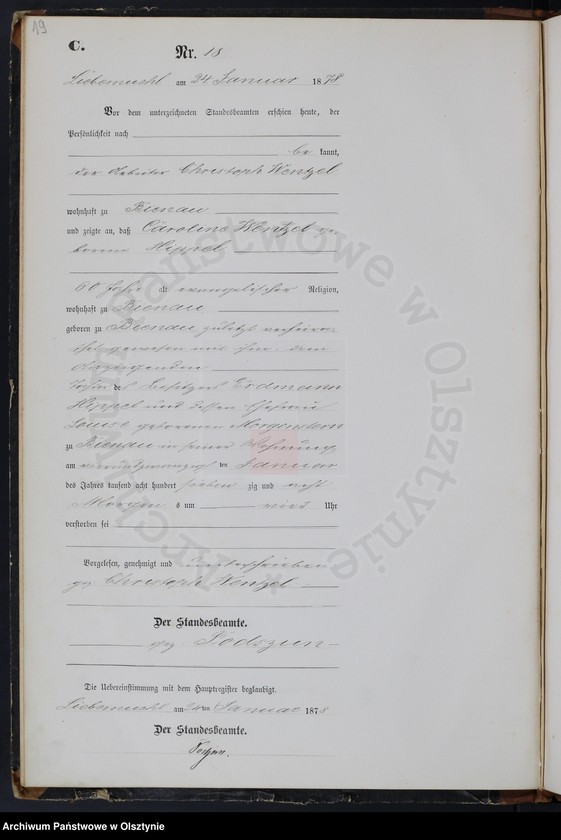 19
C.
Nr. 18
Liebemühl am 24 Januar 1878
Vor dem unterzeichneten Standesbeamten erschien heute, der
Persönlichkeit nach
be kannt,
der Arbeiter Christoph Wentzel
wohnhaft zu Bienau
und zeigte an, daß Caroline Wentzel ge
borene Hippel
60 Jahre alt evangelischer Religion,
wohnhaft zu Bienau
geboren zu Bienau zuletzt verheira-
thet gewesen mit ihm dem
Anzeigenden
des Besitzers Erdmann
Hippel und dessen Ehefrau
Louise geborenen Morgenstern
zu Bienau in seiner Wohnung
am vierundzwanzigsten Januar
des Jahres tausend acht hundert sieben zig und acht
Morgen s um vier Uhr
verstorben sei
Vorgelesen, genehmigt und unterschrieben
gez Christoph Wentzel
Der Standesbeamte.
gez
Die Uebereinstimmung mit dem Hauptregister beglaubigt.
Liebemühl am 24ten Januar 1878
Der Standesbeamte.
Archiwum Państwowe w Olsztynie
* Archiwum Państwowe w Olsztynie